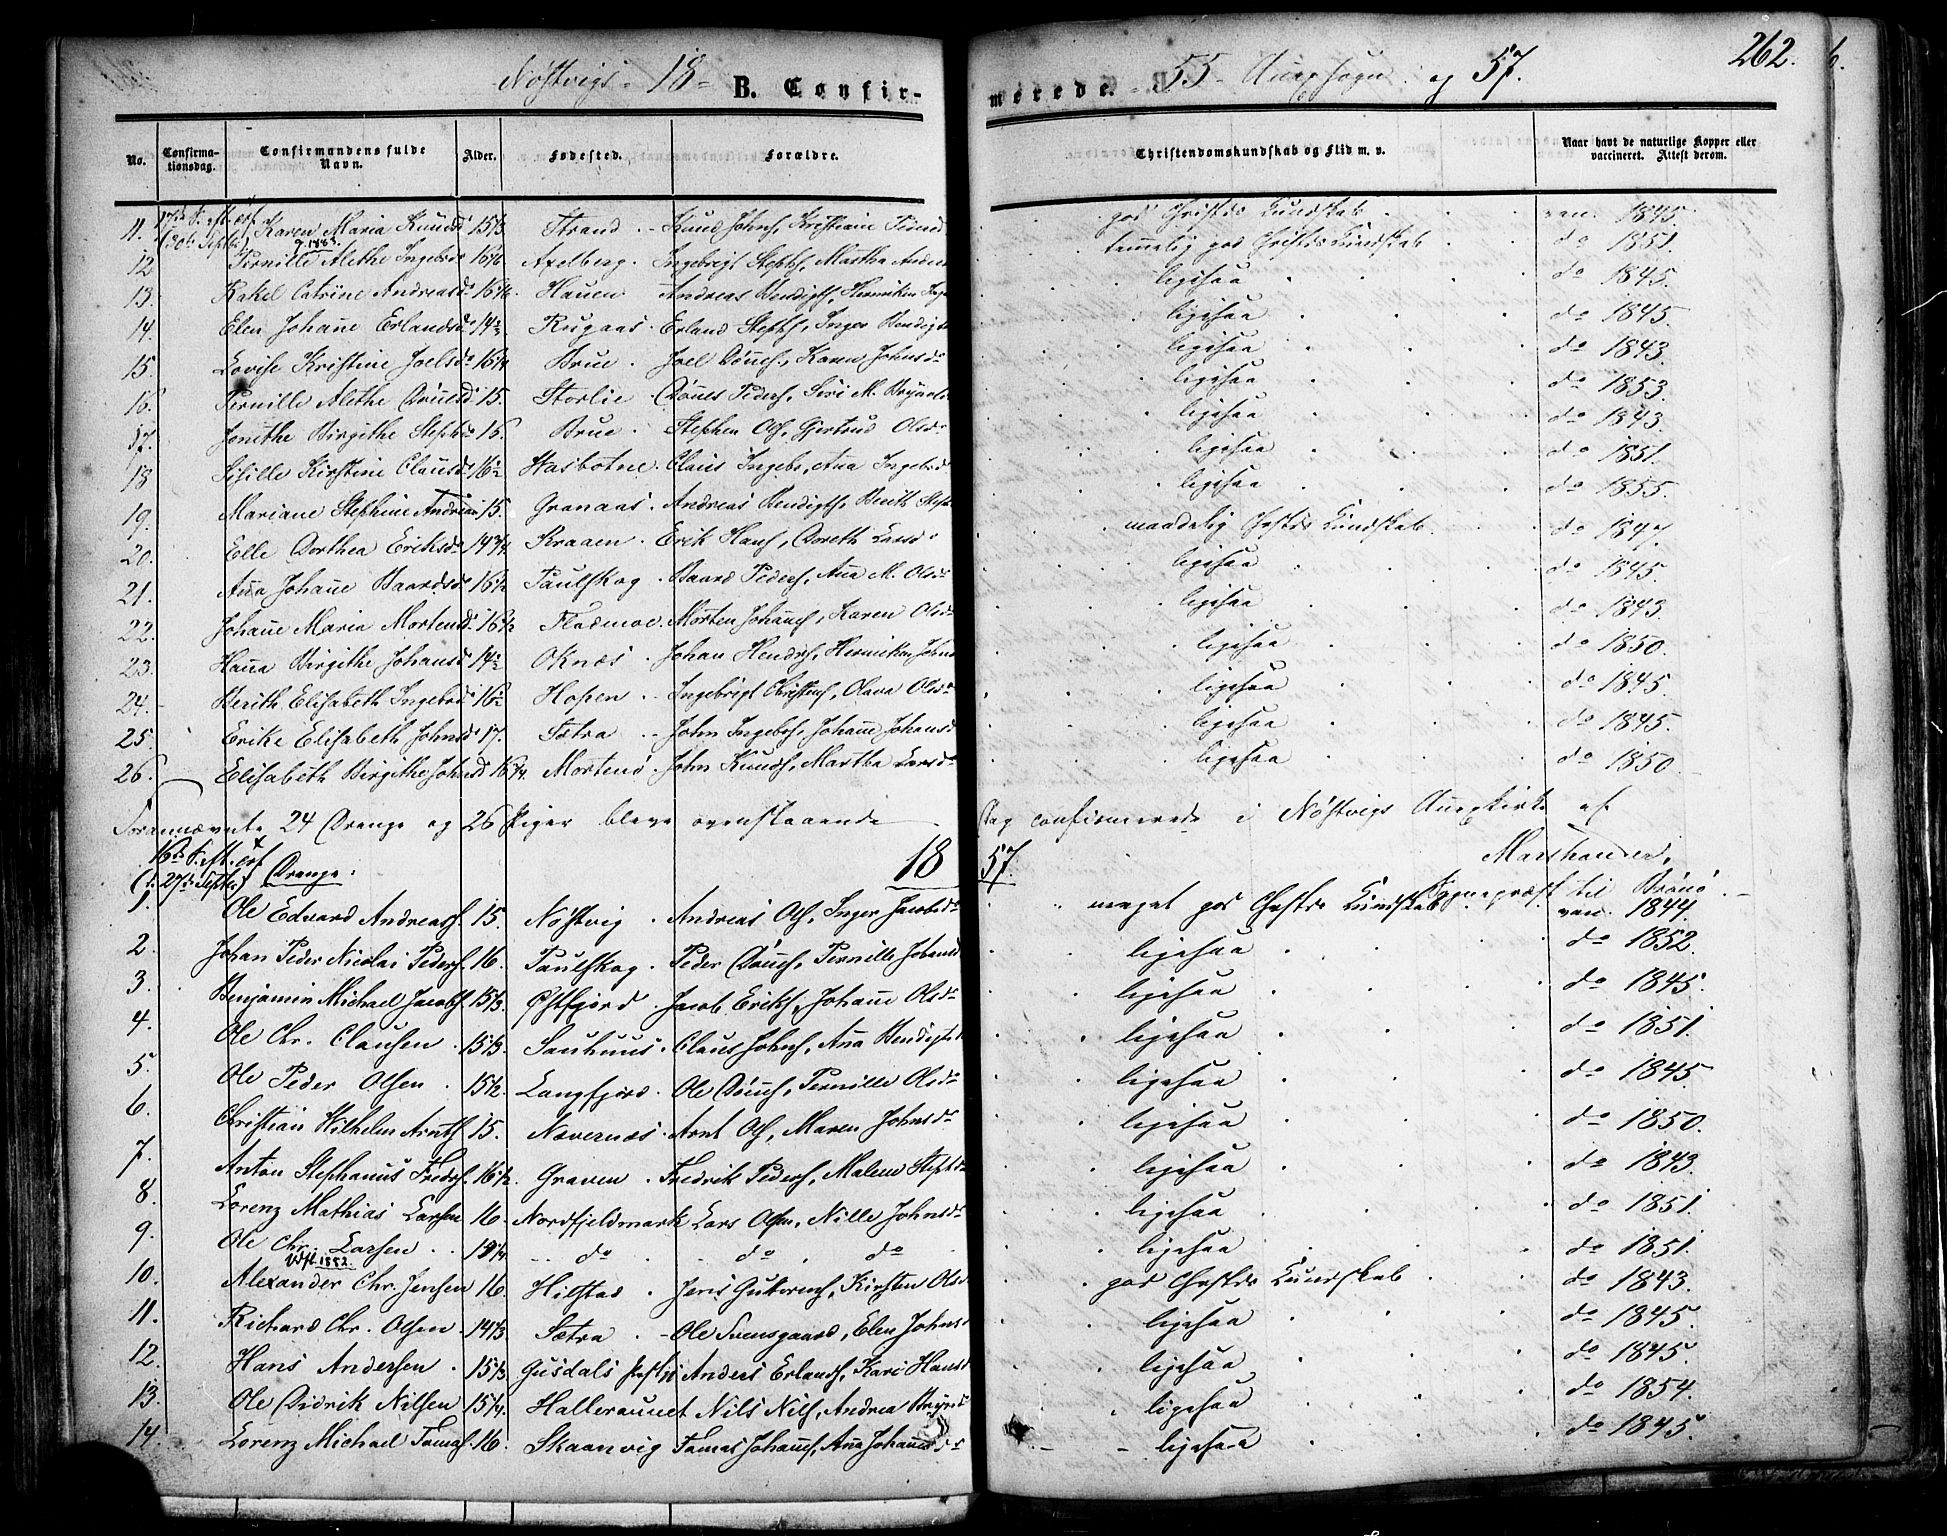 Nöstvigs - 18 - B. Confir-merede. 55 Annexsogn og 57. 262.
No. Confirmationsdag. Confirmandens fulde Navn. Alder. Fødested. Forældre. Christendomskundskab og Flid m. v. Naar havt de naturlige Kopper eller vaccineret. Attest derom.
11. 17de S. eft. Trf (30te Septbr) Karen Maria Knudsd 15 1/3 Strand Knud Johns, Kristiane god Christds Kundskab vac. 1845.
12 Pernille Alethe Ingebrd 16 Axelberg. Ingebrigt Stephs, Martha Anders temelig god Christds Kundskab do 1851.
13. Rakel Catrine Andreasd 16 Hauen Andreas Bendigts, Henrikca ligesaa do 1845.
14. Elen Johane Erlandsd 14 Rugaas. Erland Stephs, Inger Bendigts ligesaa do 1845.
15. Lovise Kristine Joelsd 16 Brue. Joel Dönes, Karen Johnsdr ligesaa do 1843.
16. Pernille Alethe Dönesd 15. Storlie Dönes Peders, Siri M. Brynels ligesaa do 1853.
17. Jonethe Birgithe Stephd 16. Brue. Stephen Ols, Gjertrud Olsdr ligesaa do 1843.
18 Sisille Kirstine Clausd 16 1/2 Hasbotne. Claus Ingebr, Ana Ingebrd ligesaa do 1851.
19. Mariane Stephine Andreas 15. Granaas. Andreas Bendigts, Berith Steph ligesaa do 1855.
20. Elle Dorthea Eriksdr 14 3/4 Kraaen. Erik Hans, Doreth Larsd maadelig Chrstds Kundskab do 1847.
21. Ana Johane Baardsd 16 1/2 Paulskog. Baard Peders, Ana M. Olsdr ligesaa do 1845.
22. Johane Maria Mortensd 16 1/2 Fladmoe. Morten Johanes, Karen Olsdr ligesaa do 1843.
23. Hana Birgithe Johansd 14 1/2 Oknæs. Johan Hendrs, Henrikca Johns ligesaa do 1850.
24. Berith Elisabeth Ingebrd 16 1/2 Hopen. Ingebrigt Christens, Olava Olsdr ligesaa do 1845.
25. Erike Elisabeth Johnsd 17. Sætra John Ingebrs, Johane Johansd ligesaa do 1845.
26. Elisabeth Birgithe Johnsd 16 3/4 Mortenö. John Knuds, Martha Larsdr ligesaa do 1850
Forannævnte 24 Drenge og 26 Piger bleve ovenstaaende Dag confirmerede i Nöstvigs Anexkirke af
Marthander,
Sognepræst til Brönö
16de S. eft. Trf (d. 27de Septbr) Drenge. 18 57.
1. Ole Edvard Andreass. 15. Nöstvig. Andreas Ols, Inger Jacobsdr meget god Chrstds Kundskab vac. 1844.
2. Johan Peder Nicolai Peders. 16. Paulskog. Peder Dönes, Pernille Johansd ligesaa do 1852.
3. Benjamin Michael Jacobs. 15 1/3. Østfjord. Jacob Eriks, Johane Olsdr ligesaa do 1845.
4. Ole Chr. Clausen. 15 1/3. Sauhuus. Claus Johns, Ana Bendigtsd ligesaa do 1851.
5. Ole Peder Olsen. 15 1/2. Langfjord. Ole Dönes, Pernille Olsdr ligesaa do 1845.
6. Christian Wilhelm Arnts. 15. Nævernæs. Arnt Ols, Maren Johnsdr ligesaa do 1850.
7. Anton Stephanus Fredrs. 16 1/2. Graven. Fredrik Peders, Malene Stephsdr ligesaa do 1843.
8. Lorenz Mathias Larsen 16. Nordfjeldmark Lars Olsen, Nille Johnsdr ligesaa do 1851.
9. Ole Chr. Larsen. 19 do do do ligesaa do 1851.
10. Alexander Chr. Jensen 16. Hilstad. Jens Guttorms, Kirsten Olsd god Chrstds Kundskab do 1843.
11. Richard Chr. Olsen. 14 1/3. Sætra. Ole Svensgaard, Elen Johnsd ligesaa do 1845.
12. Hans Andersen. 15 1/3. Gusdals Anders Erlands, Kari Hansd ligesaa do 1845.
13. Ole Didrik Nilsen 15 1/4. Halleraunet Nils Nils, Andrea Bryns ligesaa do 1854.
14. Lorenz Michael Tomas. 16. Skaanvig Tomas Johans, Ana Johanesdr ligesaa do 1845.